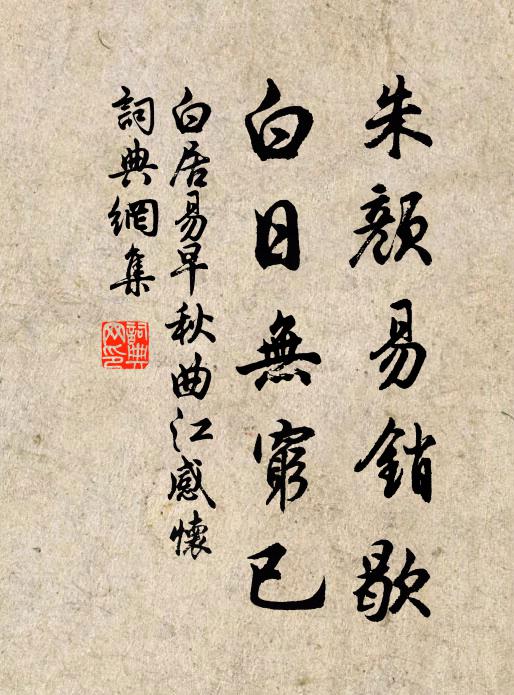 朱顏易銷歇
白日無窮已
白居易早秋曲江感懷
詞典網集
詞典網印